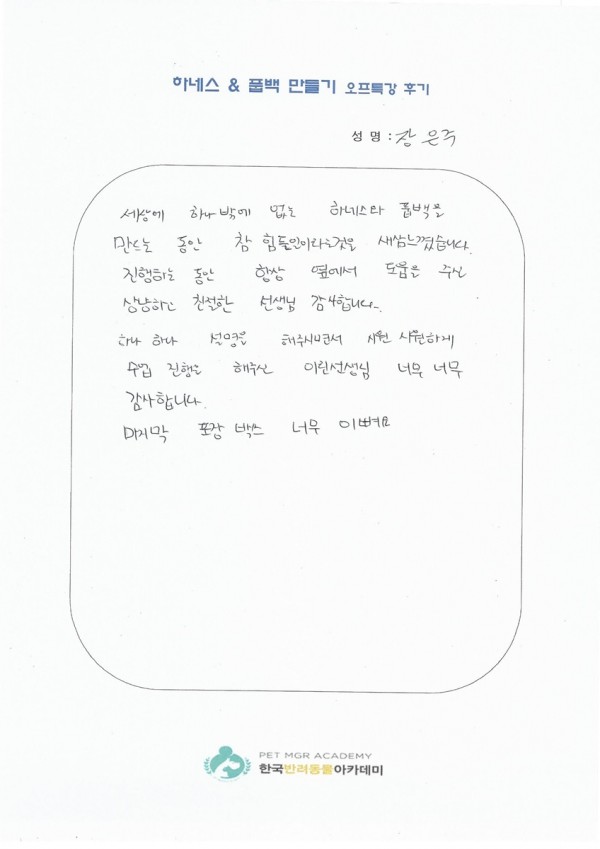 하네스 & 풉백 만들기 오프특강 후기
성 명 : 장은주
세상에 하나밖에 없는 하네스와 풉백을
만드는 동안 참 힘들일이라는것을 새삼느꼈습니다.
진행하는 동안 항상 옆에서 도움을 주신
상냥하고 친절한 선생님 감사합니다.
하나 하나 설명을 해주시면서 시원 시원하게
수업 진행을 해주신 이린선생님 너무 너무
감사합니다.
마지막 포장 박스 너무 이뻐요
PET MGR ACADEMY
한국반려동물아카데미